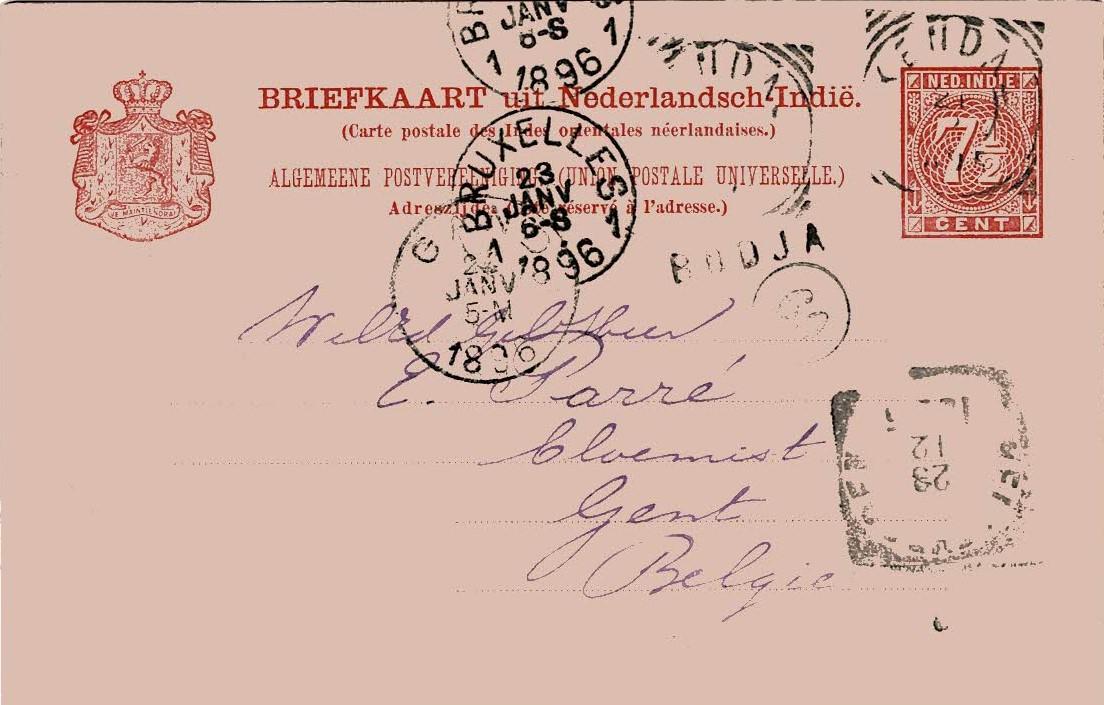 BRUXELLES 1
JANV
6-S
1 1896
BRIEFKAART uit Nederlandsch-Indië.
(Carte postale des Indes orientales néerlandaises.)
ALGEMEENE POSTVEREENIGING (UNION POSTALE UNIVERSELLE.)
Adreszijde. (Côté réservé à l'adresse.)
JE MAINTIENDRAI
NED. INDIE
7½
CENT
BRUXELLES 1
23
JANV
6-S
1 1896
24
JANV
5-M
1896
BODJA
Weled. Geb. Heer
E. Parré
Bloemist
Gent
Belgie
23
12